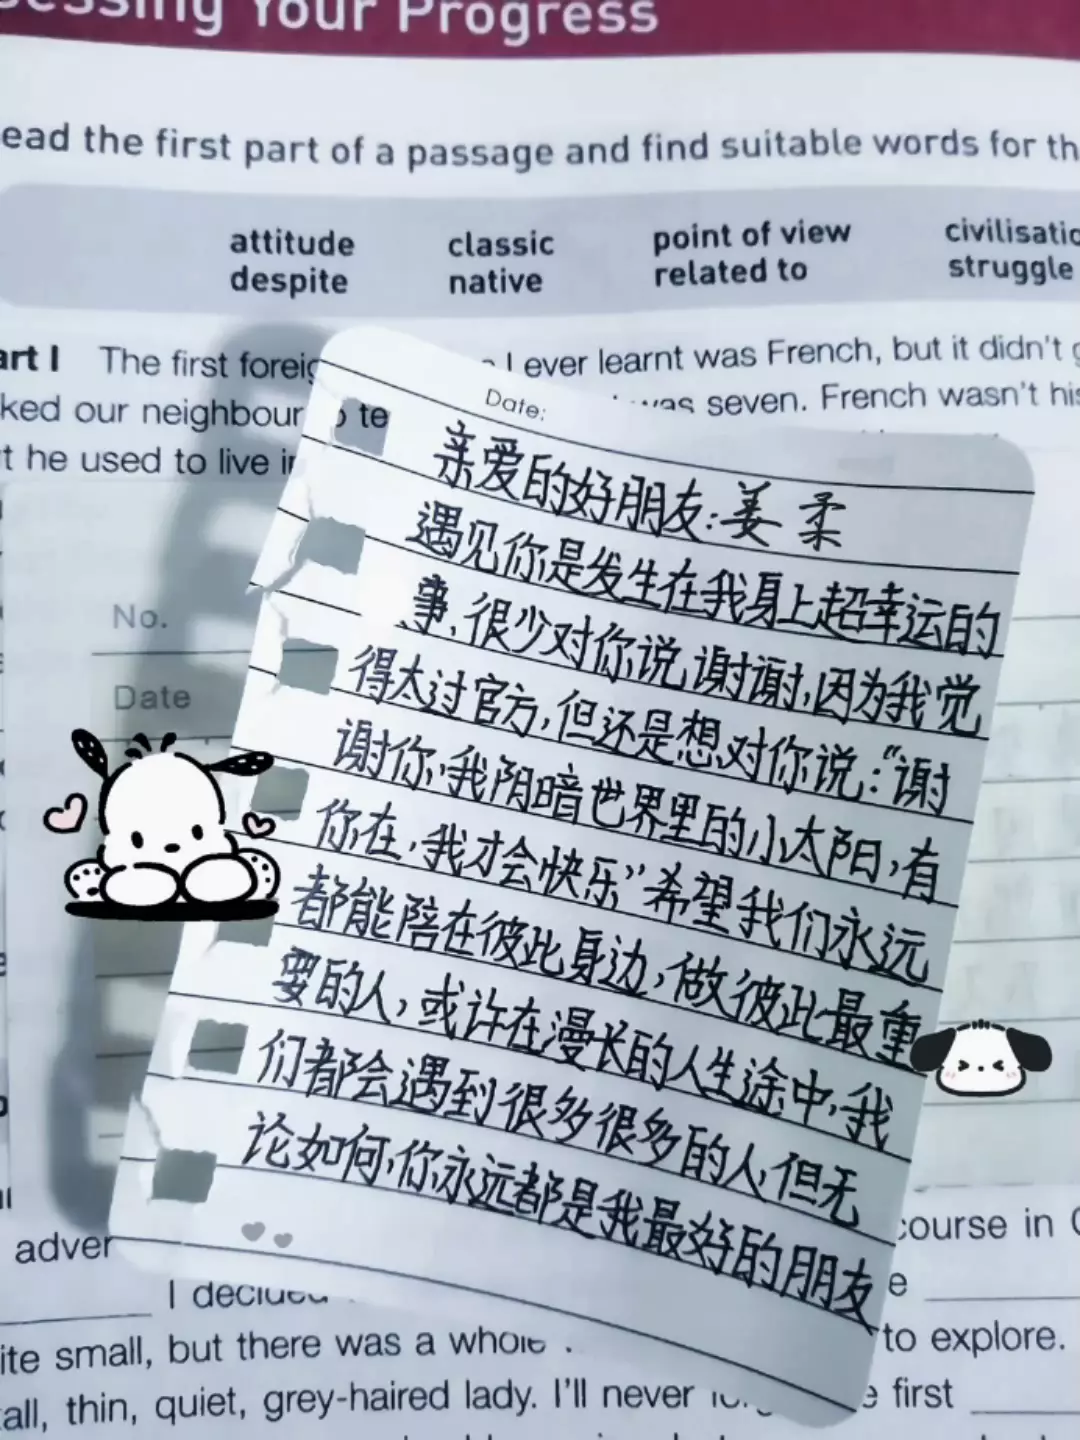 essing Your Progress
ead the first part of a passage and find suitable words for th
attitude classic point of view civilisatio
despite native related to struggle
art I The first foreig I ever learnt was French, but it didn't g
ked our neighbour to te was seven. French wasn't his
t he used to live in
Date:
亲爱的好朋友:姜柔
遇见你是发生在我身上超幸运的
事,很少对你说谢谢,因为我觉
得太过官方,但还是想对你说:“谢
谢你,我阴暗世界里的小太阳,有
你在,我才会快乐”希望我们永远
都能陪在彼此身边,做彼此最重
要的人,或许在漫长的人生途中,我
们都会遇到很多很多的人,但无
论如何,你永远都是我最好的朋友
No.
Date
adver course in C
I decided e
ite small, but there was a whole to explore.
all, thin, quiet, grey-haired lady. I'll never first